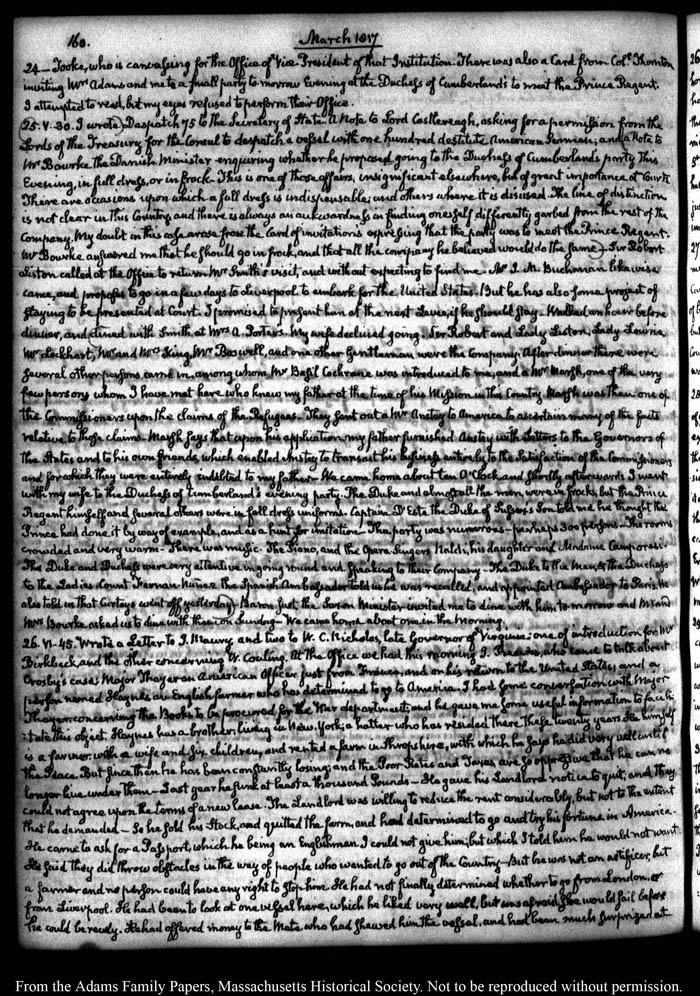 160. March 1817
24 — Tooke, who is canvassing for the Office of Vice President of that Institution. There was also a Card from Col.l Thornton
inviting Mrs Adams and me to a small party to-morrow Evening at the Duchess of Cumberland's to meet the Prince Regent.
I attempted to read, but my eyes refused to perform their Office.
25. V. 30. I wrote Despatch 75 to the Secretary of State. A Note to Lord Castlereagh, asking for a permission from the
Lords of the Treasury for the Consul to despatch a vessel with one hundred destitute American Seamen; and a Note to
Mr Bourke the Danish Minister enquiring whether he proposed going to the Duchess of Cumberland's party this
Evening, in full dress, or in frock. This is one of those affairs, insignificant elsewhere, but of great importance at Courts
There are occasions upon which a full dress is indispensable; and others where it is disused. The line of distinction
is not clear in this Country, and there is always an awkwardness in finding oneself differently garbed from the rest of the
Company. My doubt in this case arose from the Card of invitation's expressing that the party was to meet the Prince Regent.
Mr Bourke answered me that he should go in frock, and that all the company he believed would do the same. Sir Robert
Liston called at the Office to return Mr Smith's visit, and without expecting to find me. Mr J. A. Buchanan likewise
came, and proposes to go in a few days to Liverpool to embark for the United States. But he has also some project of
staying to be presented at Court. I promised to present him at the next Levee, if he should stay. Walked an hour before
dinner, and dined with Smith, at Mrs A. Porter's. My wife declined going. Sir Robert and Lady Liston, Lady
Mr Lockhart, Mr and Mrs King, Mr Boswell, and one other Gentleman were the Company. After dinner there were
several other persons came in, among whom Mr Basil Cochrane was introduced to me; and a Mr Marsh, one of the very
few persons whom I have met here who knew my father at the time of his Mission in this Country. Marsh was then one of
the Commissioners upon the claims of the Refugees. They sent out a Mr Anstey to America to ascertain many of the facts
relative to those claims. Marsh says that upon his application my father furnished Anstey with Letters, to the Governors of
the States and to his own friends, which enabled Anstey to transact his business entirely to the satisfaction of the Commissioners
and for which they were entirely indebted to my father. We came home about ten O'Clock, and shortly afterwards I went
with my wife to the Duchess of Cumberland's evening party. The Duke and almost all the men, were in frocks, but the Prince
Regent himself and several others were in full dress uniforms. Captain D'Este the Duke of Sussex's Son told me he thought the
Prince had done it by way of example, and as a hint for imitation. The party was numerous — perhaps 300 persons. The rooms
crowded and very warm. There was music. The Piano, and the Opera Singers Naldi, his daughter and Madame Camporesi.
The Duke and Duchess were very attentive in going round and speaking to their Company. The Duke to the Men, & the Duchess
to the Ladies. Count Fernan Nuñez the Spanish Ambassador told us he was recalled, and appointed Ambassador to Paris. He
also told us that Curtoys went off yesterday. Baron Just the Saxon Minister invited me to dine with him to-morrow and Mr and
Mrs Bourke asked us to dine with them on Sunday. We came home about one in the Morning.
26. VI. 45. Wrote a Letter to J. Maury, and two to W. C. Nicholas, late Governor of Virginia: one of introduction for Mr
Birkbeck, and the other concerning W. Couling. At the Office we had this morning J. who came to talk about
Crosby's case; Major Thayer an American Officer just from France, and on his return to the United States; and a
person named Haynes an English farmer who has determined to go to America. I had some conversation with Major
Thayer concerning the Books to be procured for the War department; and he gave me some useful information to facili-
tate this object. Haynes has a brother living in New York; a hatter who has resided there these twenty years. He himself
is a farmer with a wife and six children, and rented a farm in Shropshire, with which he says he did very well until
the Peace. But since then he has been constantly losing; and the Poor Rates and Taxes are so oppressive that he can no
longer live under them. Last year he sunk at least a thousand Pounds. He gave his Landlord notice to quit, and they
could not agree upon the terms of a new lease. The Landlord was willing to reduce the rent considerably, but not to the extent
that he demanded. So he sold his Stock, and quitted the farm, and had determined to go and try his fortune in America.
He came to ask for a Passport, which he being an Englishman I could not give him; but which I told him he would not want.
He said they did throw obstacles in the way of people who wanted to go out of the Country. But he was not an artificer, but
a farmer and no person could have any right to stop him. He had not finally determined whether to go from London, or
from Liverpool. He had been to look at one vessel here, which he liked very well, but was afraid she would sail before
he could be ready. He had offered money to the Mate who had shewed him the vessel, and had been much surprized at
From the Adams Family Papers, Massachusetts Historical Society. Not to be reproduced without permission.